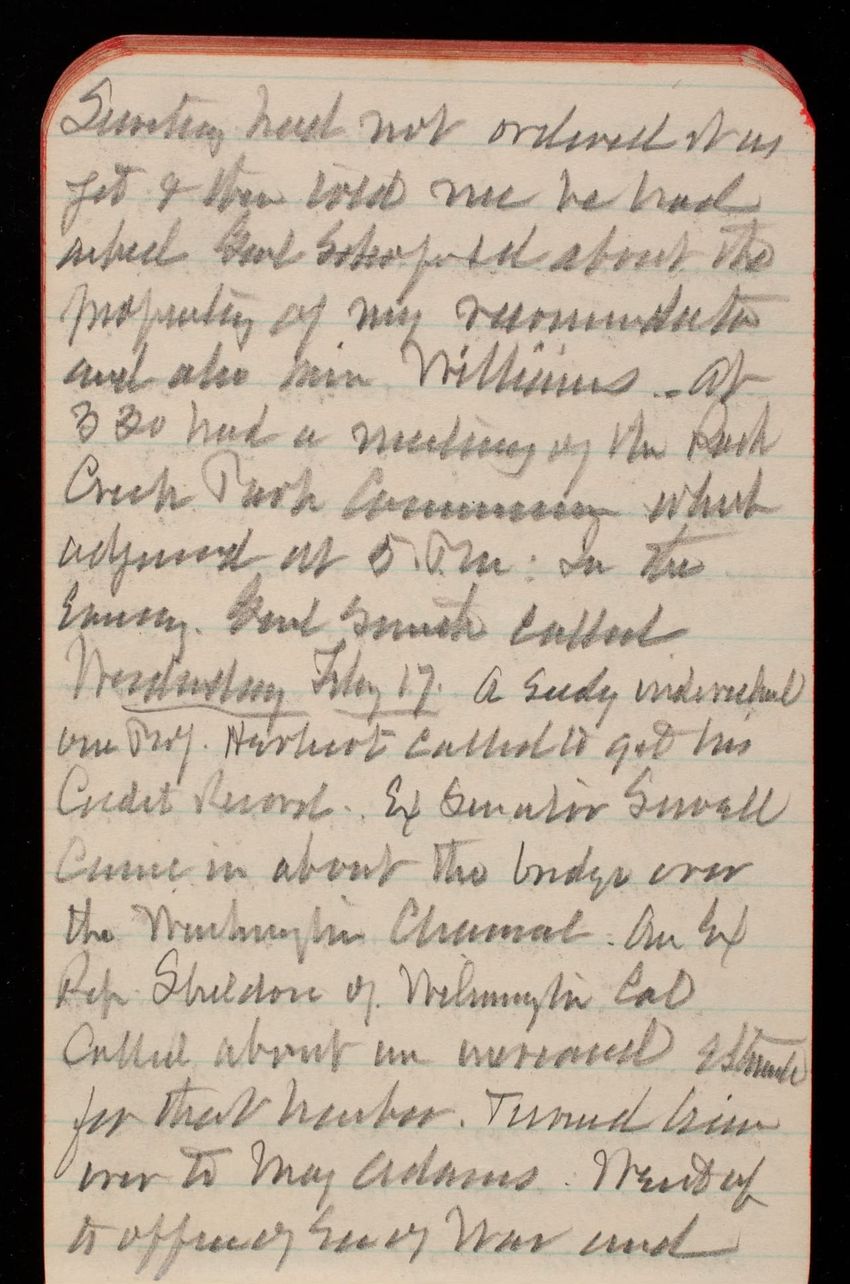 Secretary had not ordered it as
yet & then told me he had
asked Genl Schofield about the
propriety of my recommendation
and also him Williams - At
3 30 had a meeting of the Rock
Creek Park Commission which
adjourned at 5 P.M: In the
Evening. Genl Smith called
Wednesday Feby 17. A seedy individual
one Prof. called to get his
Cadet Record. Ex Senator Sewell
Came in about the bridge over
the Washington Channel. An Ex
Rep Sheldon of Wilmington Cal
Called about an increased estimate
for that harbor. Turned him
over to Maj Adams. Went up
to office of Sec of War and